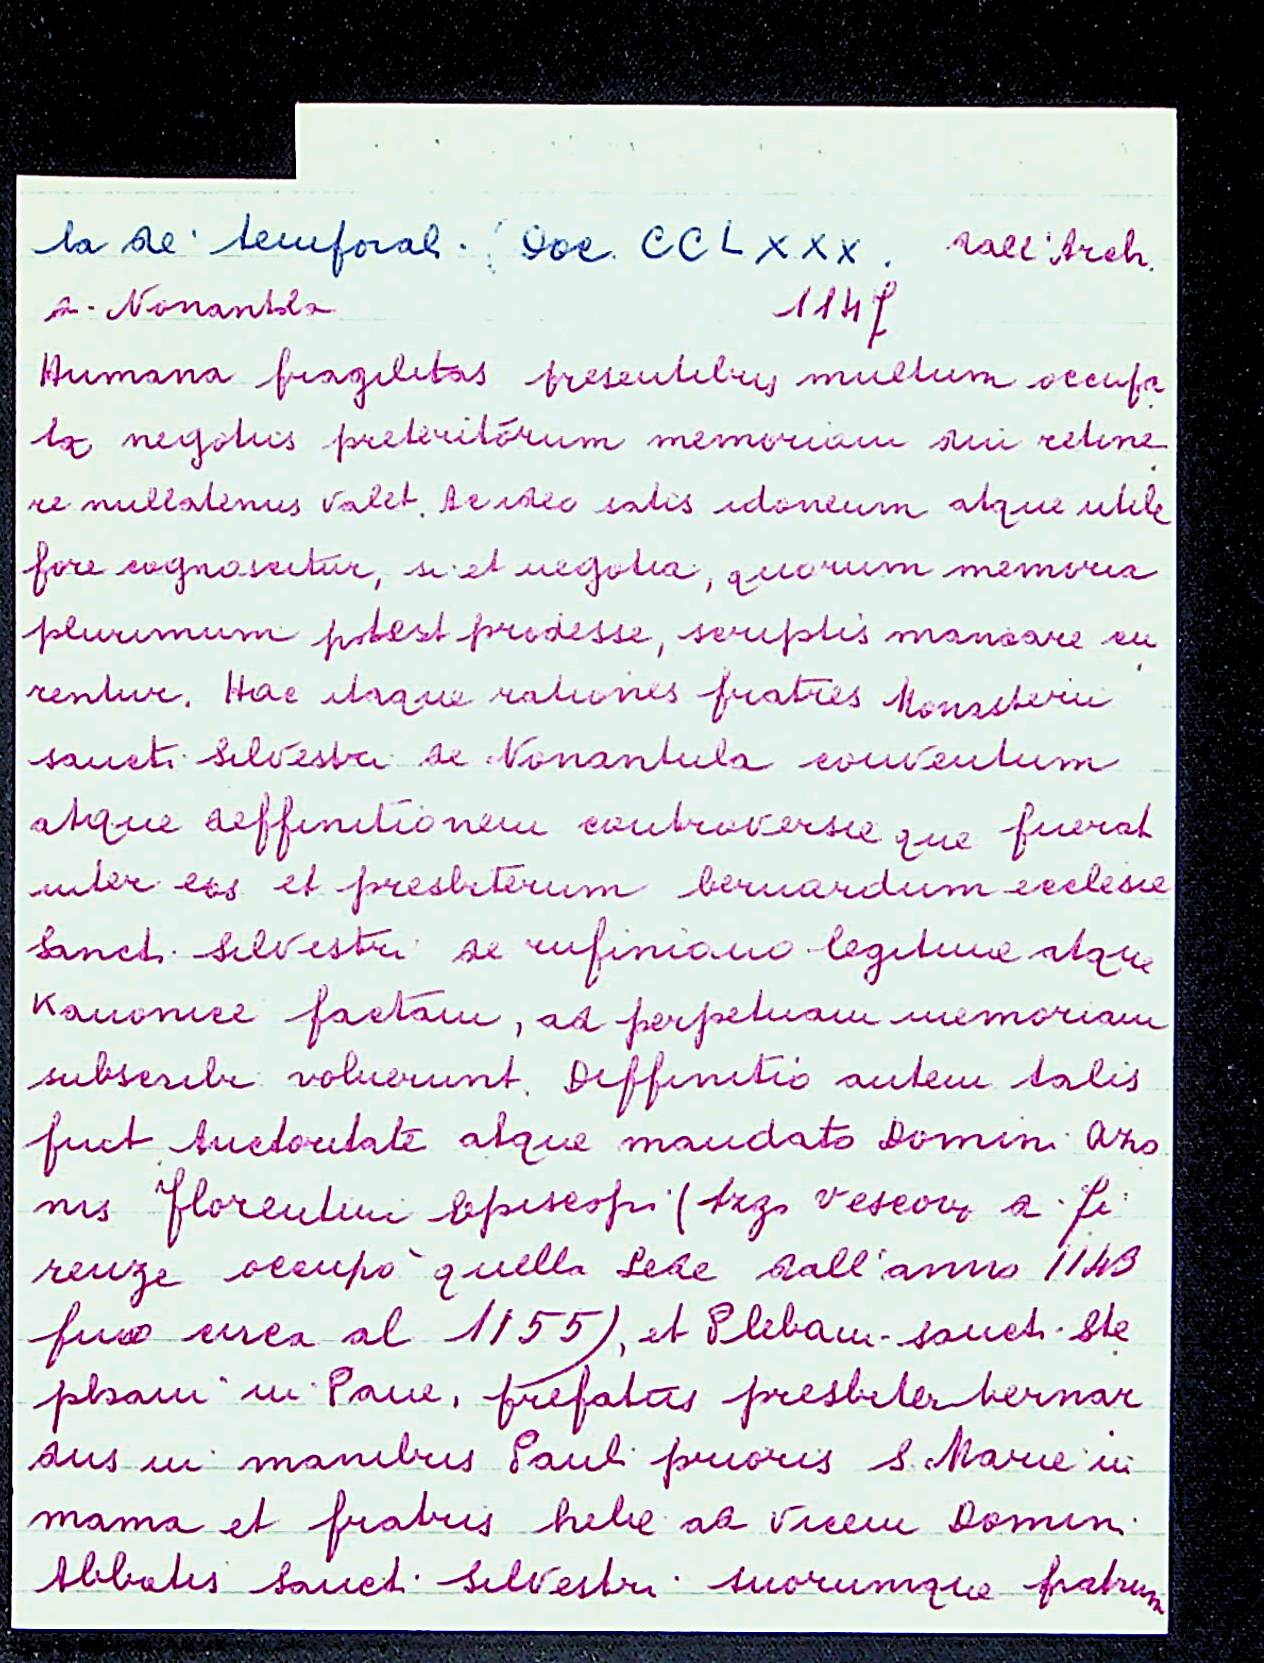 la de' temporal. Doc. CCLXXX. dall'Arch.
d. Nonantola 1147
Humana fragilitas presentibus multum occupa
ta negotiis preteritorum memoriam sui retine
re nullatenus valet. Ac ideo satis idoneum atque utile
fore cognoscitur, si et negotia, quorum memoria
plurimum potest prodesse, scriptis mandare cu
rentur. Hac itaque rationes fratres Monasterii
sancti Silvestri de Nonantula conventum
atque deffinitionem controversie que fuerat
inter eos et presbiterum bernardum ecclesie
Sancti Silvestri de rufiniano legitime atque
Kanonice factam, ad perpetuam memoriam
subscribi voluerunt. Deffinitio autem talis
fuit Auctoritate atque mandato Domini Azo
nis Florentini Episcopi (Azzo Vescovo di Fi
renze occupò quella Sede dall'anno 1143
fino circa al 1155), et Plebani sancti Ste
phani in Pane, prefatus presbiter bernar
dus in manibus Pauli prioris S. Marie in
mama et fratris helie ad vicem Domini
Abbatis Sancti Silvestri suorumque fratrum